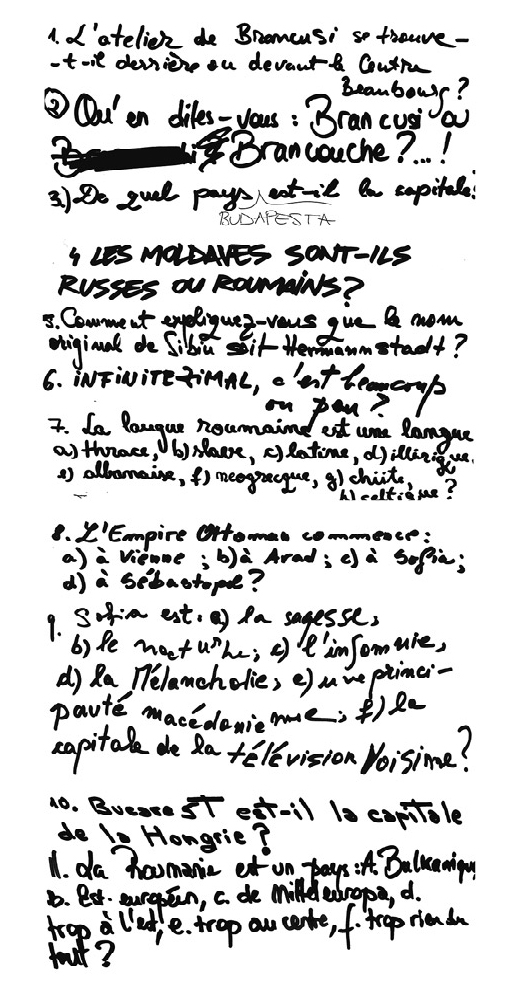 1. L'atelier de Brancusi se trouve-
-t-il derrière ou devant le Centre
Beaubourg?
2 Qu'en dites-vous: Brancusi ou
Brancouche?...!
3.) De quel pays est-il la capitale:
BUDAPESTA
4 LES MOLDAVES SONT-ILS
RUSSES OU ROUMAINS?
5. Comment expliquez-vous que le nom
original de Sibiu soit Hermannstadt?
6. INFINITEZIMAL, c'est beaucoup
ou peu?
7. La langue roumaine est une langue
a) thrace, b) slave, c) latine, d) illirique,
e) albanaise, f) neogrecque, g) chiite,
h) celtique?
8. L'Empire Ottoman commence:
a) à Vienne; b) à Arad; c) à Sofia;
d) à Sébastopol?
9. Sofia est: a) la sagesse,
b) le nocturne; c) l'insomnie,
d) la Mélancholie, e) une princi-
pauté macédonienne; f) la
capitale de la télévision Voisine?
10. BucaresT est-il la capitale
de la Hongrie?
11. La Roumanie est un pays: A. Balkanique
b. Est-européen, c. de Mitteleuropa, d.
trop à l'est, e. trop au centre, f. trop rien du
tout?